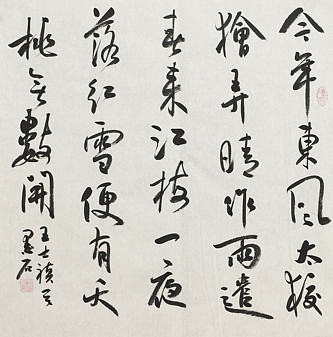 今年東風太狡
獪弄晴作雨遣
春来江梅一夜
落紅雪便有夭
桃無數開
王士禎
墨石